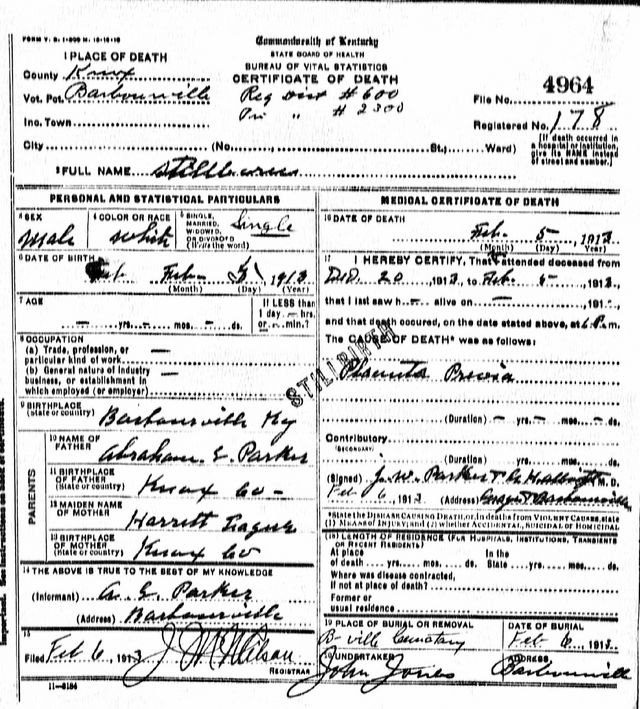 FORM V. S. 1-
Commonwealth of Kentucky
STATE BOARD OF HEALTH
BUREAU OF VITAL STATISTICS
CERTIFICATE OF DEATH
1 PLACE OF DEATH
County Knox
Vot. Pct. Barbourville
Inc. Town
City (No., St., Ward)
Reg Dist # 600
Pri " # 2300
4964
File No.
Registered No. 178
[If death occurred in
a hospital or institution,
give its NAME instead
of street and number.]
2 FULL NAME Stillborn
PERSONAL AND STATISTICAL PARTICULARS
3 SEX
Male
4 COLOR OR RACE
White
5 SINGLE,
MARRIED,
WIDOWED,
OR DIVORCED
(Write the word)
Single
6 DATE OF BIRTH
Feb 5, 1913
(Month) (Day) (Year)
7 AGE
— yrs. — mos. — ds.
If LESS than
1 day — hrs.
or — min.?
8 OCCUPATION
(a) Trade, profession, or
particular kind of work —
(b) General nature of industry
business, or establishment in
which employed (or employer) —
9 BIRTHPLACE
(State or country)
Barbourville Ky
PARENTS
10 NAME OF
FATHER
Abraham E. Parker
11 BIRTHPLACE
OF FATHER
(State or country)
Knox Co
12 MAIDEN NAME
OF MOTHER
Harrett
13 BIRTHPLACE
OF MOTHER
(State or country)
Knox Co
14 THE ABOVE IS TRUE TO THE BEST OF MY KNOWLEDGE
(Informant) A. E. Parker
(Address) Barbourville
15
Filed Feb 6, 1913 J. M. Wilson
REGISTRAR
11-6184
MEDICAL CERTIFICATE OF DEATH
16 DATE OF DEATH
Feb. 5 1913
(Month) (Day) (Year)
17 I HEREBY CERTIFY, That I attended deceased from
20 1913, to Feb. 5 1913,
that I last saw h— alive on — 191
and that death occured, on the date stated above, at 6 P.m.
The CAUSE OF DEATH* was as follows:
STILLBIRTH
Placenta Previa
(Duration) — yrs. — mos. — ds.
Contributory
(SECONDARY)
(Duration) yrs. mos. ds.
(Signed) J. W. Parker M.D.
Feb 6, 1913 (Address) Barbourville
*State the DISEASE CAUSING DEATH, or, in deaths from VIOLENT CAUSES, state
(1) MEANS OF INJURY; and (2) whether ACCIDENTAL, SUICIDAL or HOMICIDAL.
18 LENGTH OF RESIDENCE (FOR HOSPITALS, INSTITUTIONS, TRANSIENTS
OR RECENT RESIDENTS)
At place In the
of death yrs. mos. ds. State yrs. mos. ds.
Where was disease contracted,
if not at place of death?
Former or
usual residence
19 PLACE OF BURIAL OR REMOVAL
B-ville Cemetary
DATE OF BURIAL
Feb 6, 1913
20 UNDERTAKER
John Jones
ADDRESS
Barbourville